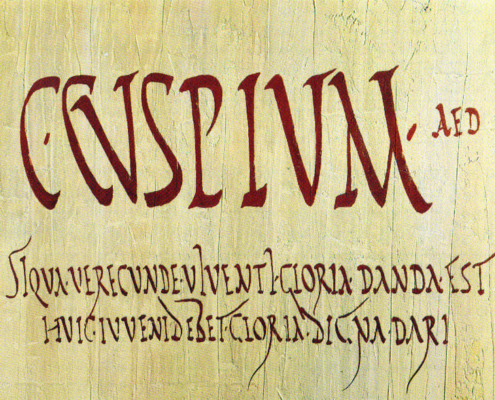 C·CVSPIVM· AED
SIQVA·VERECVNDE·VIVENTI·GLORIA·DANDA·EST
HVIC·IVVENI DEBET·GLORIA·DIGNA·DARI